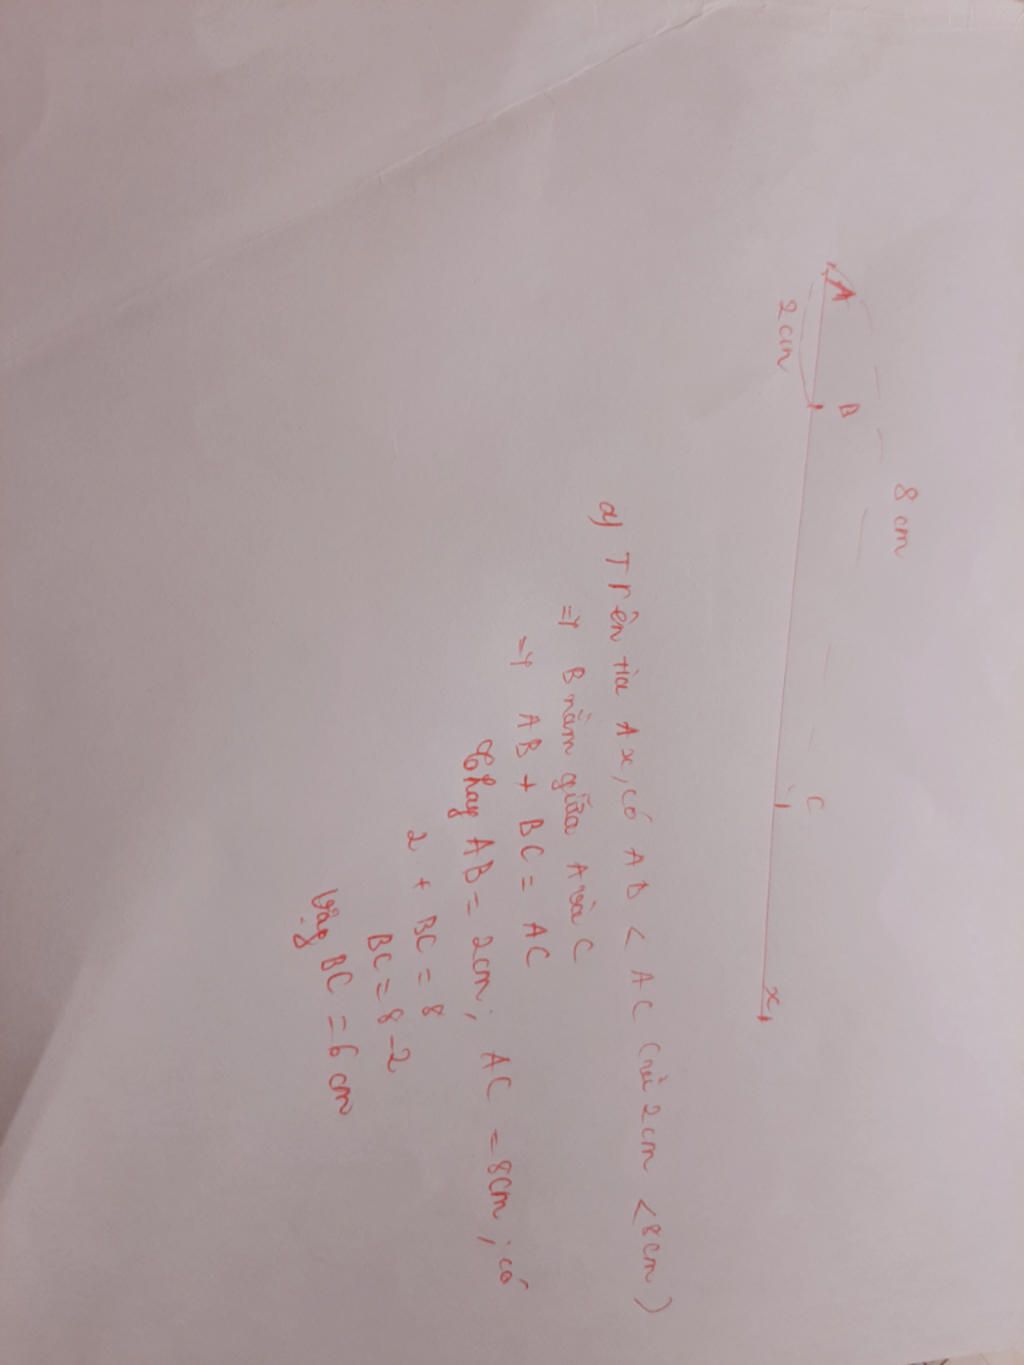 8 cm
A B C x
2 cm
a) Trên tia Ax, có AB < AC (vì 2cm < 8cm)
=> B nằm giữa A và C
=> AB + BC = AC
Thay AB = 2cm; AC = 8cm; có
2 + BC = 8
BC = 8 - 2
Vậy BC = 6 cm